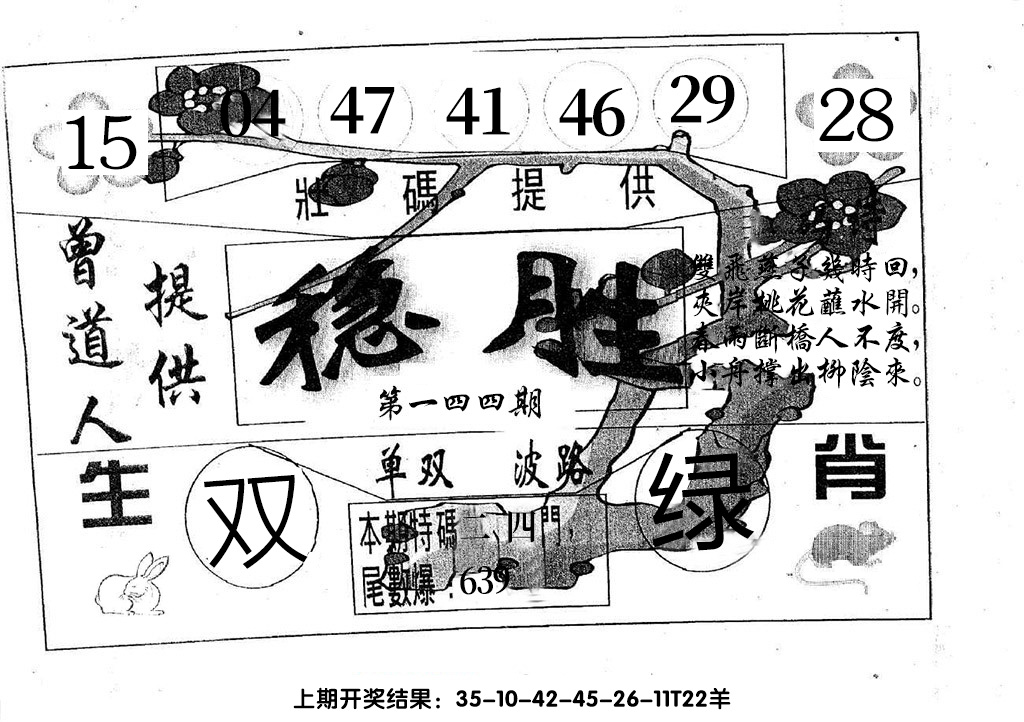 15 04 47 41 46 29 28
壯碼提供
曾道人
提供
稳胜
第一四四期
雙飛燕子幾時回，
夾岸桃花蘸水開。
春雨斷橋人不度，
小舟撐出柳陰來。
生
肖
单双 波路
双
绿
本期特碼二、四門，
尾數爆：639
上期开奖结果：35-10-42-45-26-11T22羊